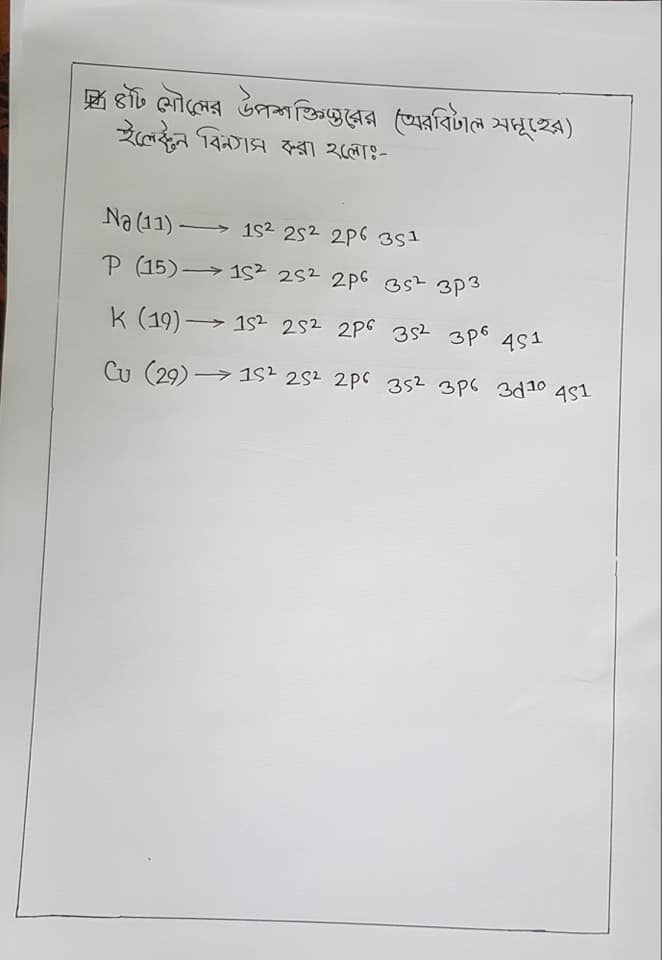 ৪টি মৌলের উপশক্তিস্তরের (অরবিটাল সমূহের)
ইলেকট্রন বিন্যাস করা হলোঃ-
Na (11) → 1s² 2s² 2p⁶ 3s¹
P (15) → 1s² 2s² 2p⁶ 3s² 3p³
K (19) → 1s² 2s² 2p⁶ 3s² 3p⁶ 4s¹
Cu (29) → 1s² 2s² 2p⁶ 3s² 3p⁶ 3d¹⁰ 4s¹